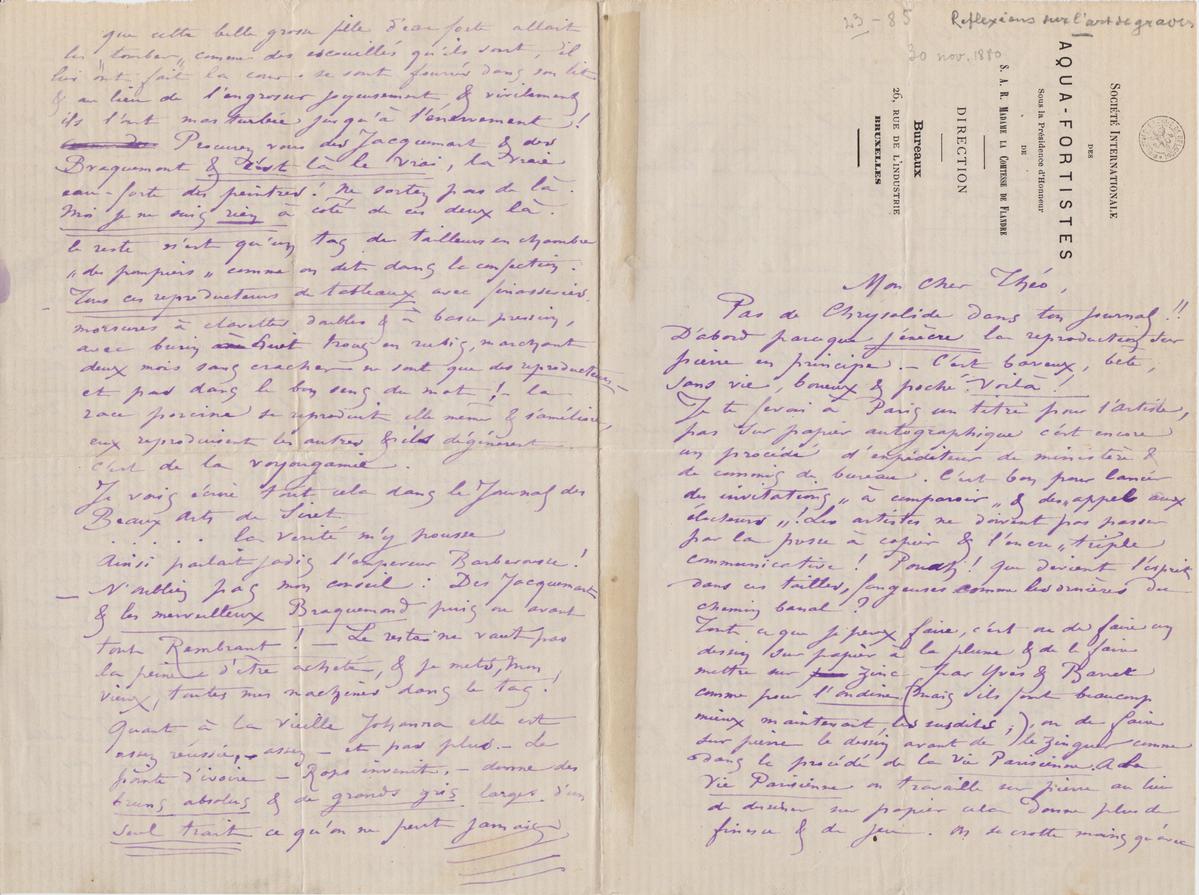 23 – 85
Reflexions sur l'art de graver
30 nov. 1880
SOCIÉTÉ INTERNATIONALE
DES
AQUA-FORTISTES
Sous la Présidence d'Honneur
DE
S. A. R. MADAME LA COMTESSE DE FLANDRE
DIRECTION
Bureaux
26, RUE DE L'INDUSTRIE
BRUXELLES
Mon Cher Théo,
Pas de Chrysalide dans ton journal !!
D'abord parceque j'exècre la reproduction sur
pierre en principe. – C'est baveux, bête,
sans vie, boueux & poché. Voila !
Je te ferai à Paris un titre pour l'artiste,
pas sur papier autographique c'est encore
un procédé d'expéditeur de ministère &
de commis de bureau. C'est bon pour lancer
des invitations „ à comparoir „ & des „ appels aux
électeurs „ ! Les artistes ne doivent pas passer
par la presse à copier & l'encre „ triple
communicative ! Pouah ! que devient l'esprit
dans ces tailles, fangeuses comme les ornières du
chemin banal ?
Tout ce que je peux faire, c'est ou de faire un
dessin sur papier à la plume & de le faire
mettre sur zinc par Yves & Barret
comme pour l'ondine (mais ils font beaucoup
mieux maintenant, les susdits ;) ou de faire
sur pierre le dessin avant de le zinguer comme
dans le procédé de la Vie Parisienne. A la
Vie Parisienne on travaille sur pierre au lieu
de dessiner sur papier cela donne plus de
finesse & de jeu. On se crotte moins qu'avec
que cette belle grosse fille d'eau forte allait
les „ tomber „ comme des escouillés qu'ils sont, il
lui ont fait la cour. se sont fourrés dans son lit
& au lieu de l'engrosser joyeusement & virilement
ils l'ont masturbée jusqu'à l'énervement !
Procurez vous des Jacquemart & des
Braquemont & c'est là le vrai, la vraie
eau-forte des peintres ! Ne sortez pas de là.
Moi je ne suis rien à côté de ces deux là.
le reste n'est qu'un tas de tailleurs en chambre
„ des pompiers „ comme on dit dans la confection.
Tous ces reproducteurs de tableaux avec finasseries,
morsures à clavettes doubles & à basse pression,
avec burin trous en rubis, marchant
deux mois sans cracher ne sont que des reproducteurs –
et pas dans le bon sens du mot ! – la
race porcine se reproduit elle même & s'améliore,
eux reproduisent les autres & ils dégénèrent
c'est de la voyougamie.
Je vais écrire tout cela dans le Journal des
Beaux Arts de Siret
. . . . . . la vérité m'y pousse
Ainsi parlait jadis l'empereur Barberousse !
– N'oubliez pas mon conseil : Des Jacquemart
& les merveilleux Braquemond puis ou avant
tout Rembrant ! – Le reste ne vaut pas
la peine d'être acheté, & je mets, mon
vieux, toutes mes machines dans le tas !
Quant à la vieille Johanna elle est
assez réussie, – assez – et pas plus. – La
pointe d'ivoire – Rops invenit, – donne des
bruns absolus & de grands gris larges d'un
seul trait ce qu'on ne peut jamais